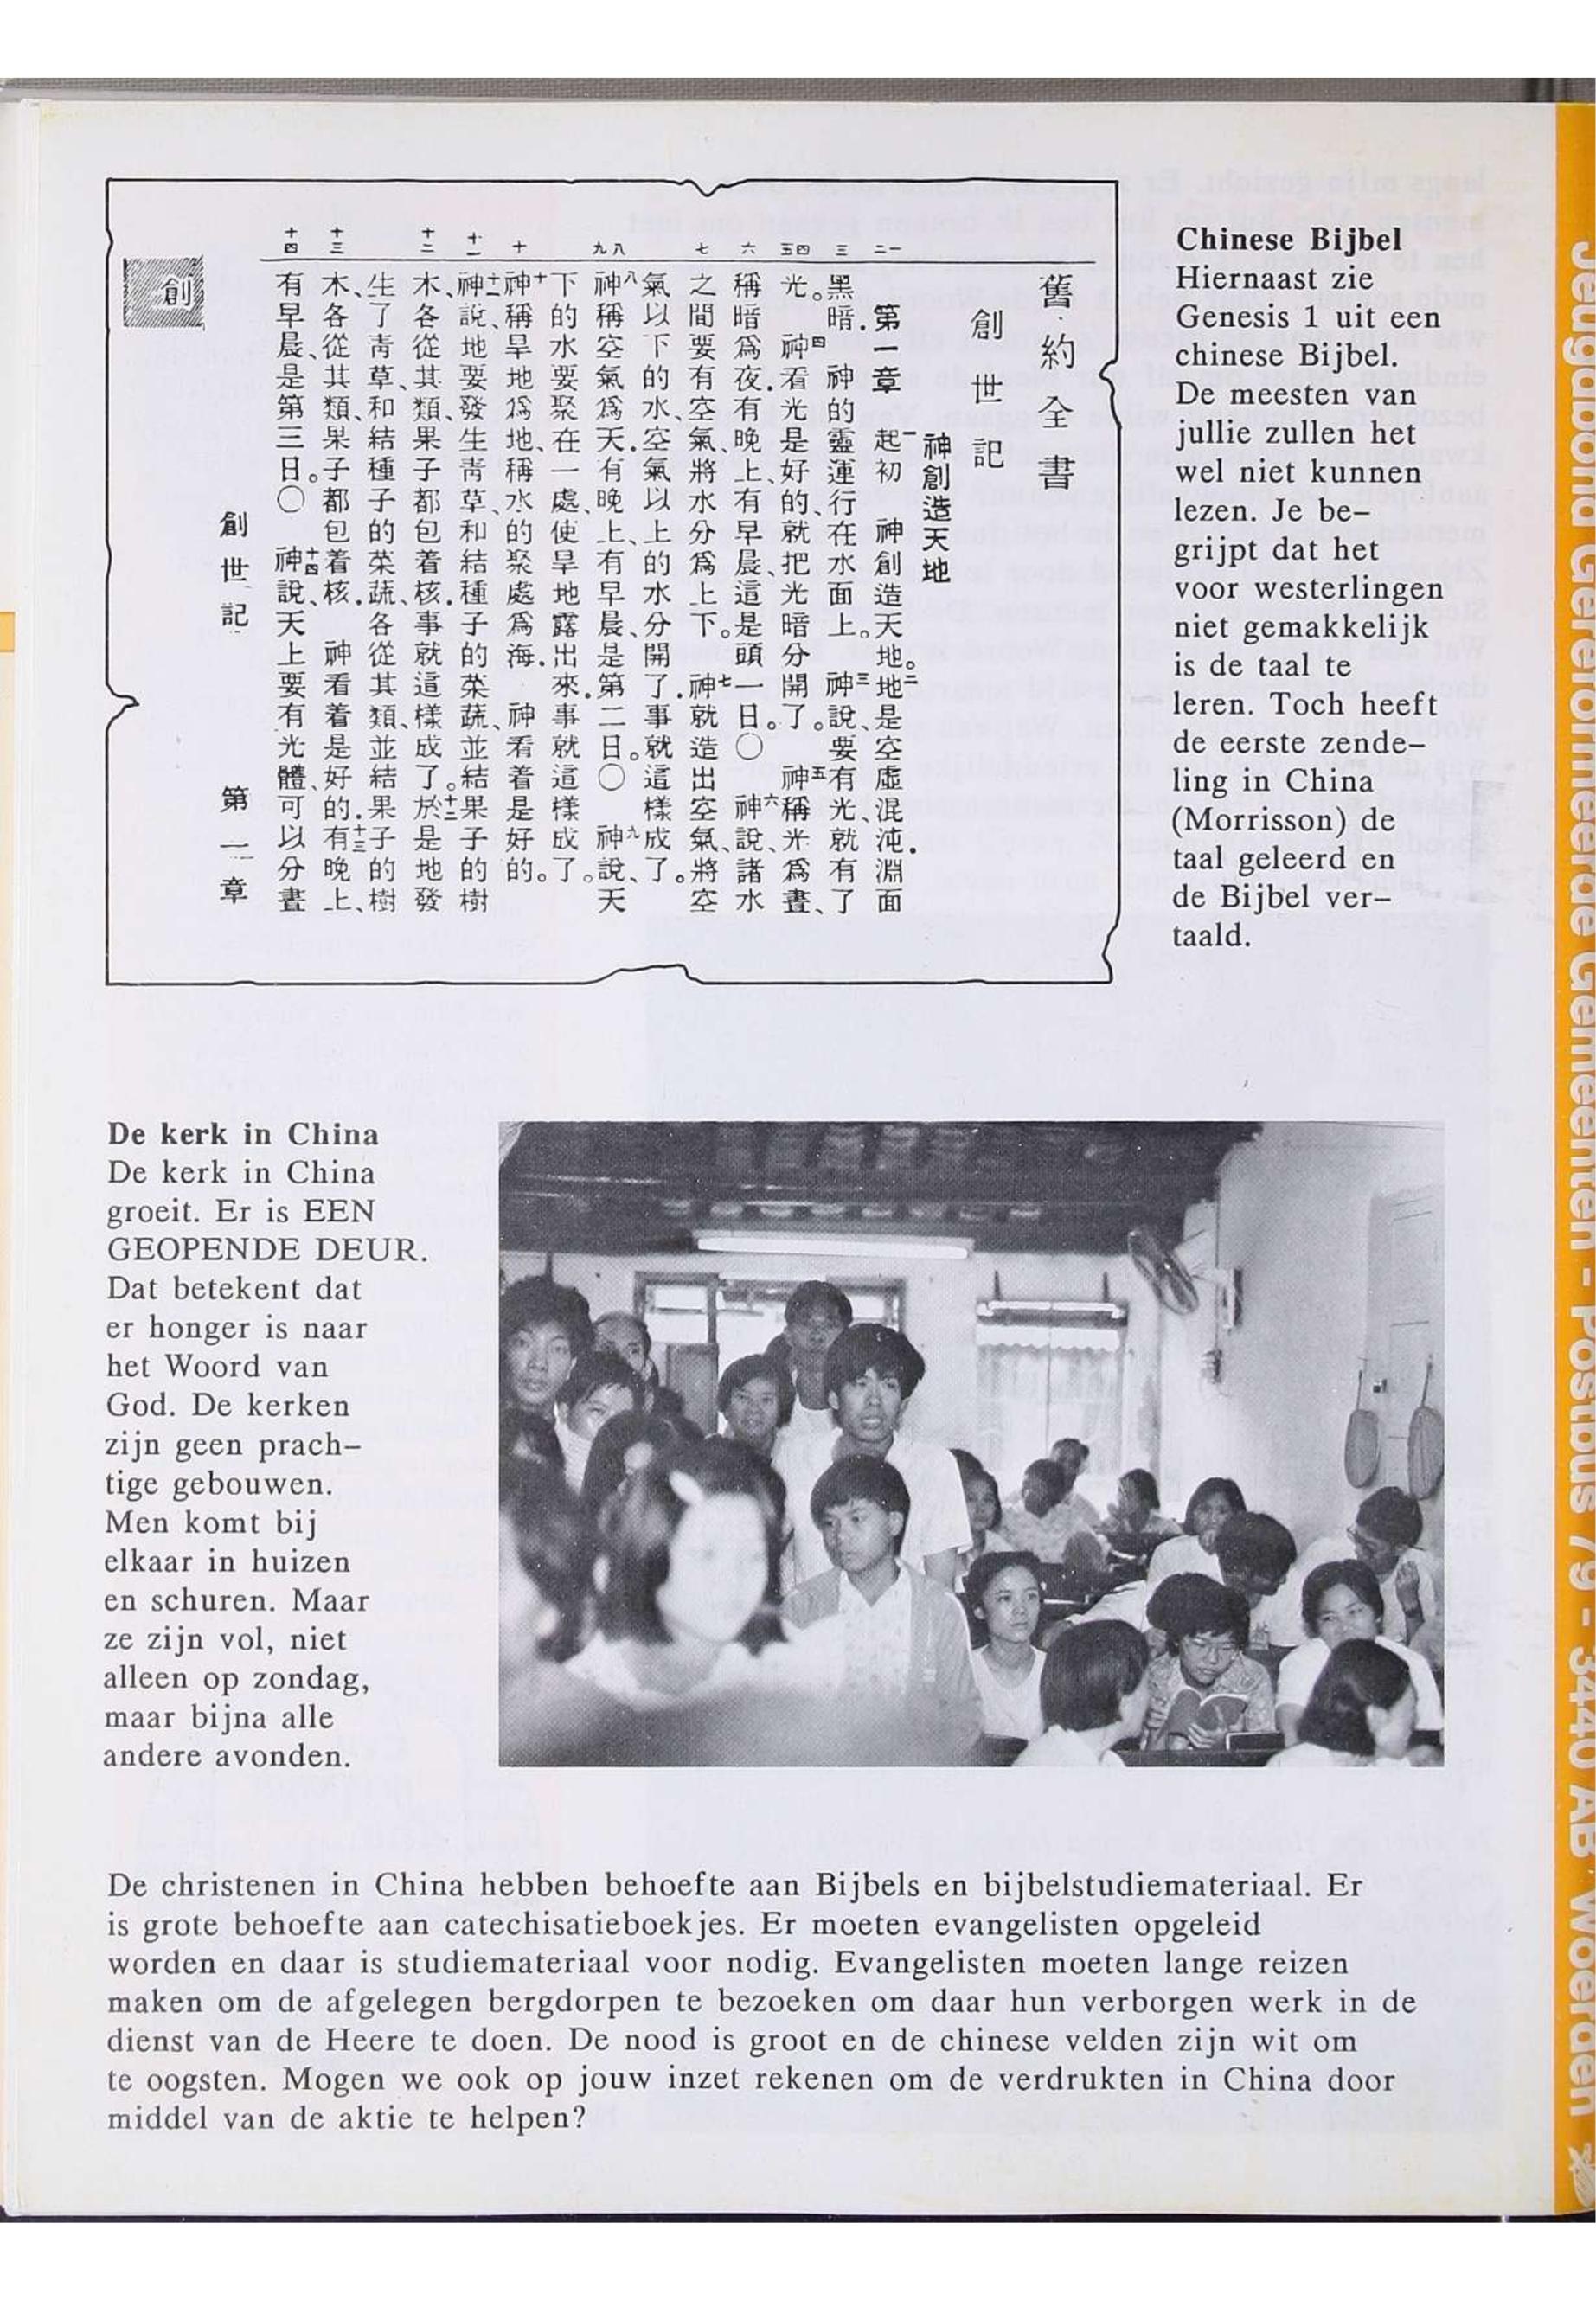 舊約全書
創世記
神創造天地
一二 三 四五 六 七 八九 十 十一 十二 十三 十四
第一章 一起初 神創造天地。二地是空虛混沌.淵面
黑暗. 神的靈運行在水面上。三神說、要有光、就有了
光。 四神看光是好的、就把光暗分開了。 五神稱光爲晝、
稱暗爲夜.有晚上、有早晨、這是頭一日。〇 六神說、諸水
之間要有空氣、將水分爲上下。七神就造出空氣、將空
氣以下的水、空氣以上的水分開了.事就這樣成了。
八神稱空氣爲天.有晚上、有早晨、是第二日。〇 九神說、天
下的水要聚在一處、使旱地露出來.事就這樣成了。
十神稱旱地爲地、稱水的聚處爲海. 神看着是好的。
十一神說、地要發生靑草、和結種子的菜蔬、並結果子的樹
木、各從其類、果子都包着核.事就這樣成了。十二於是地發
生了靑草、和結種子的菜蔬、各從其類、並結果子的樹
木、各從其類、果子都包着核. 神看着是好的.十三有晚上、
有早晨、是第三日。〇 十四神說、天上要有光體、可以分晝
創世記 第一章
創
Chinese Bijbel
Hiernaast zie
Genesis 1 uit een
chinese Bijbel.
De meesten van
jullie zullen het
wel niet kunnen
lezen. Je be-
grijpt dat het
voor westerlingen
niet gemakkelijk
is de taal te
leren. Toch heeft
de eerste zende-
ling in China
(Morrisson) de
taal geleerd en
de Bijbel ver-
taald.
De kerk in China
De kerk in China
groeit. Er is EEN
GEOPENDE DEUR.
Dat betekent dat
er honger is naar
het Woord van
God. De kerken
zijn geen prach-
tige gebouwen.
Men komt bij
elkaar in huizen
en schuren. Maar
ze zijn vol, niet
alleen op zondag,
maar bijna alle
andere avonden.
De christenen in China hebben behoefte aan Bijbels en bijbelstudiemateriaal. Er
is grote behoefte aan catechisatieboekjes. Er moeten evangelisten opgeleid
worden en daar is studiemateriaal voor nodig. Evangelisten moeten lange reizen
maken om de afgelegen bergdorpen te bezoeken om daar hun verborgen werk in de
dienst van de Heere te doen. De nood is groot en de chinese velden zijn wit om
te oogsten. Mogen we ook op jouw inzet rekenen om de verdrukten in China door
middel van de aktie te helpen?
Jeugdbond Gereformeerde Gemeenten - Postbus 79 - 3440 AB Woerden